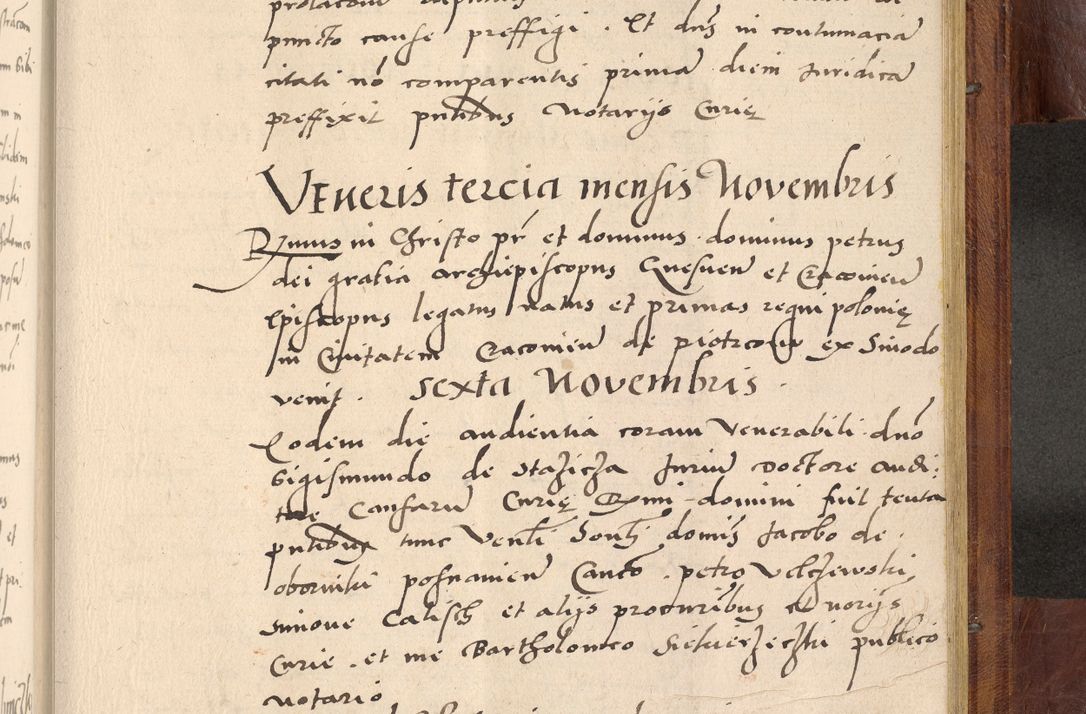 puncto cause preffigi . Et dns in contumacia
citati nō comparentis prima diem Juridica
preffixit pntibus Notarijs Curię
Veneris tercia mensis Novembris
Rymus in Christo pr et dominus dominus petrus
dei gratia archiepiscopus Gnesnen et Cracovien
Episcopus legatus natus et primas regni polonię
in Civitatem Cracovien de piotrcow ex Sinodo
venit . Sexta Novembris .
Eodem die audientia coram Venerabili dno
Sigismundo de Stazicza Juriu Doctore audi
tore Causaru Curię Rmi domini fuit tenta
pntibus tunc Venli Jacobo de
oborniki posnanien Canco . petro Velczewski
Simone Calisch et alijs procuribus et norijs
Curie . et me Bartholomeo publico
notario